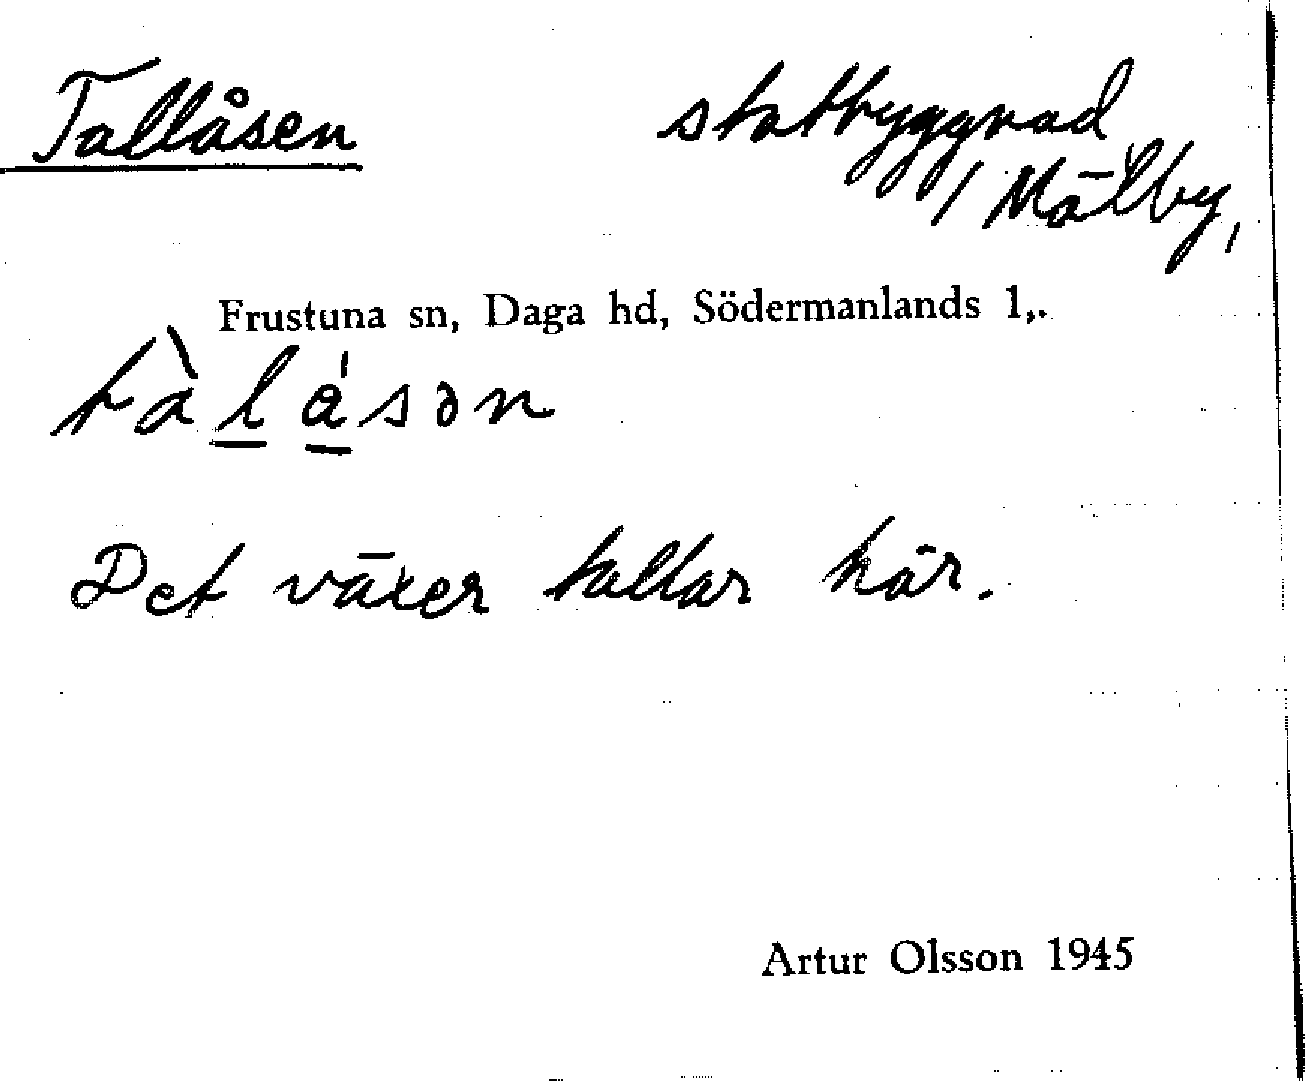 Tallåsen statbyggnad
/ Mälby,
Frustuna sn, Daga hd, Södermanlands l,.
tàlásən
Det växer tallar här.
Artur Olsson 1945